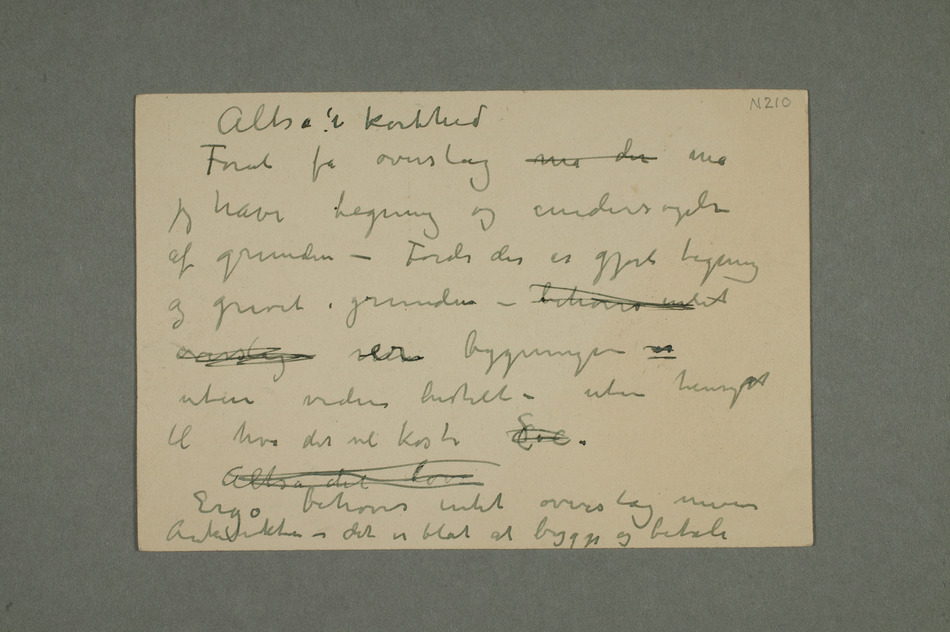 N210
Altså i korthed
Forat få overslag må der må
jeg have tegning og undersøgelse
af grunden – Fordi der er gjort tegning
og gravet i grunden – behøves intet
overslag bygningen
uten videre bestilt – uten hensyn
til hva det vil koste
Altså det
Ergo behøves intet overslag mener
Arkitekten – det er blot at bygge og betale